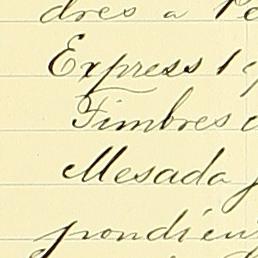 dres a
Express 1
Timbres
Mesada
pondien